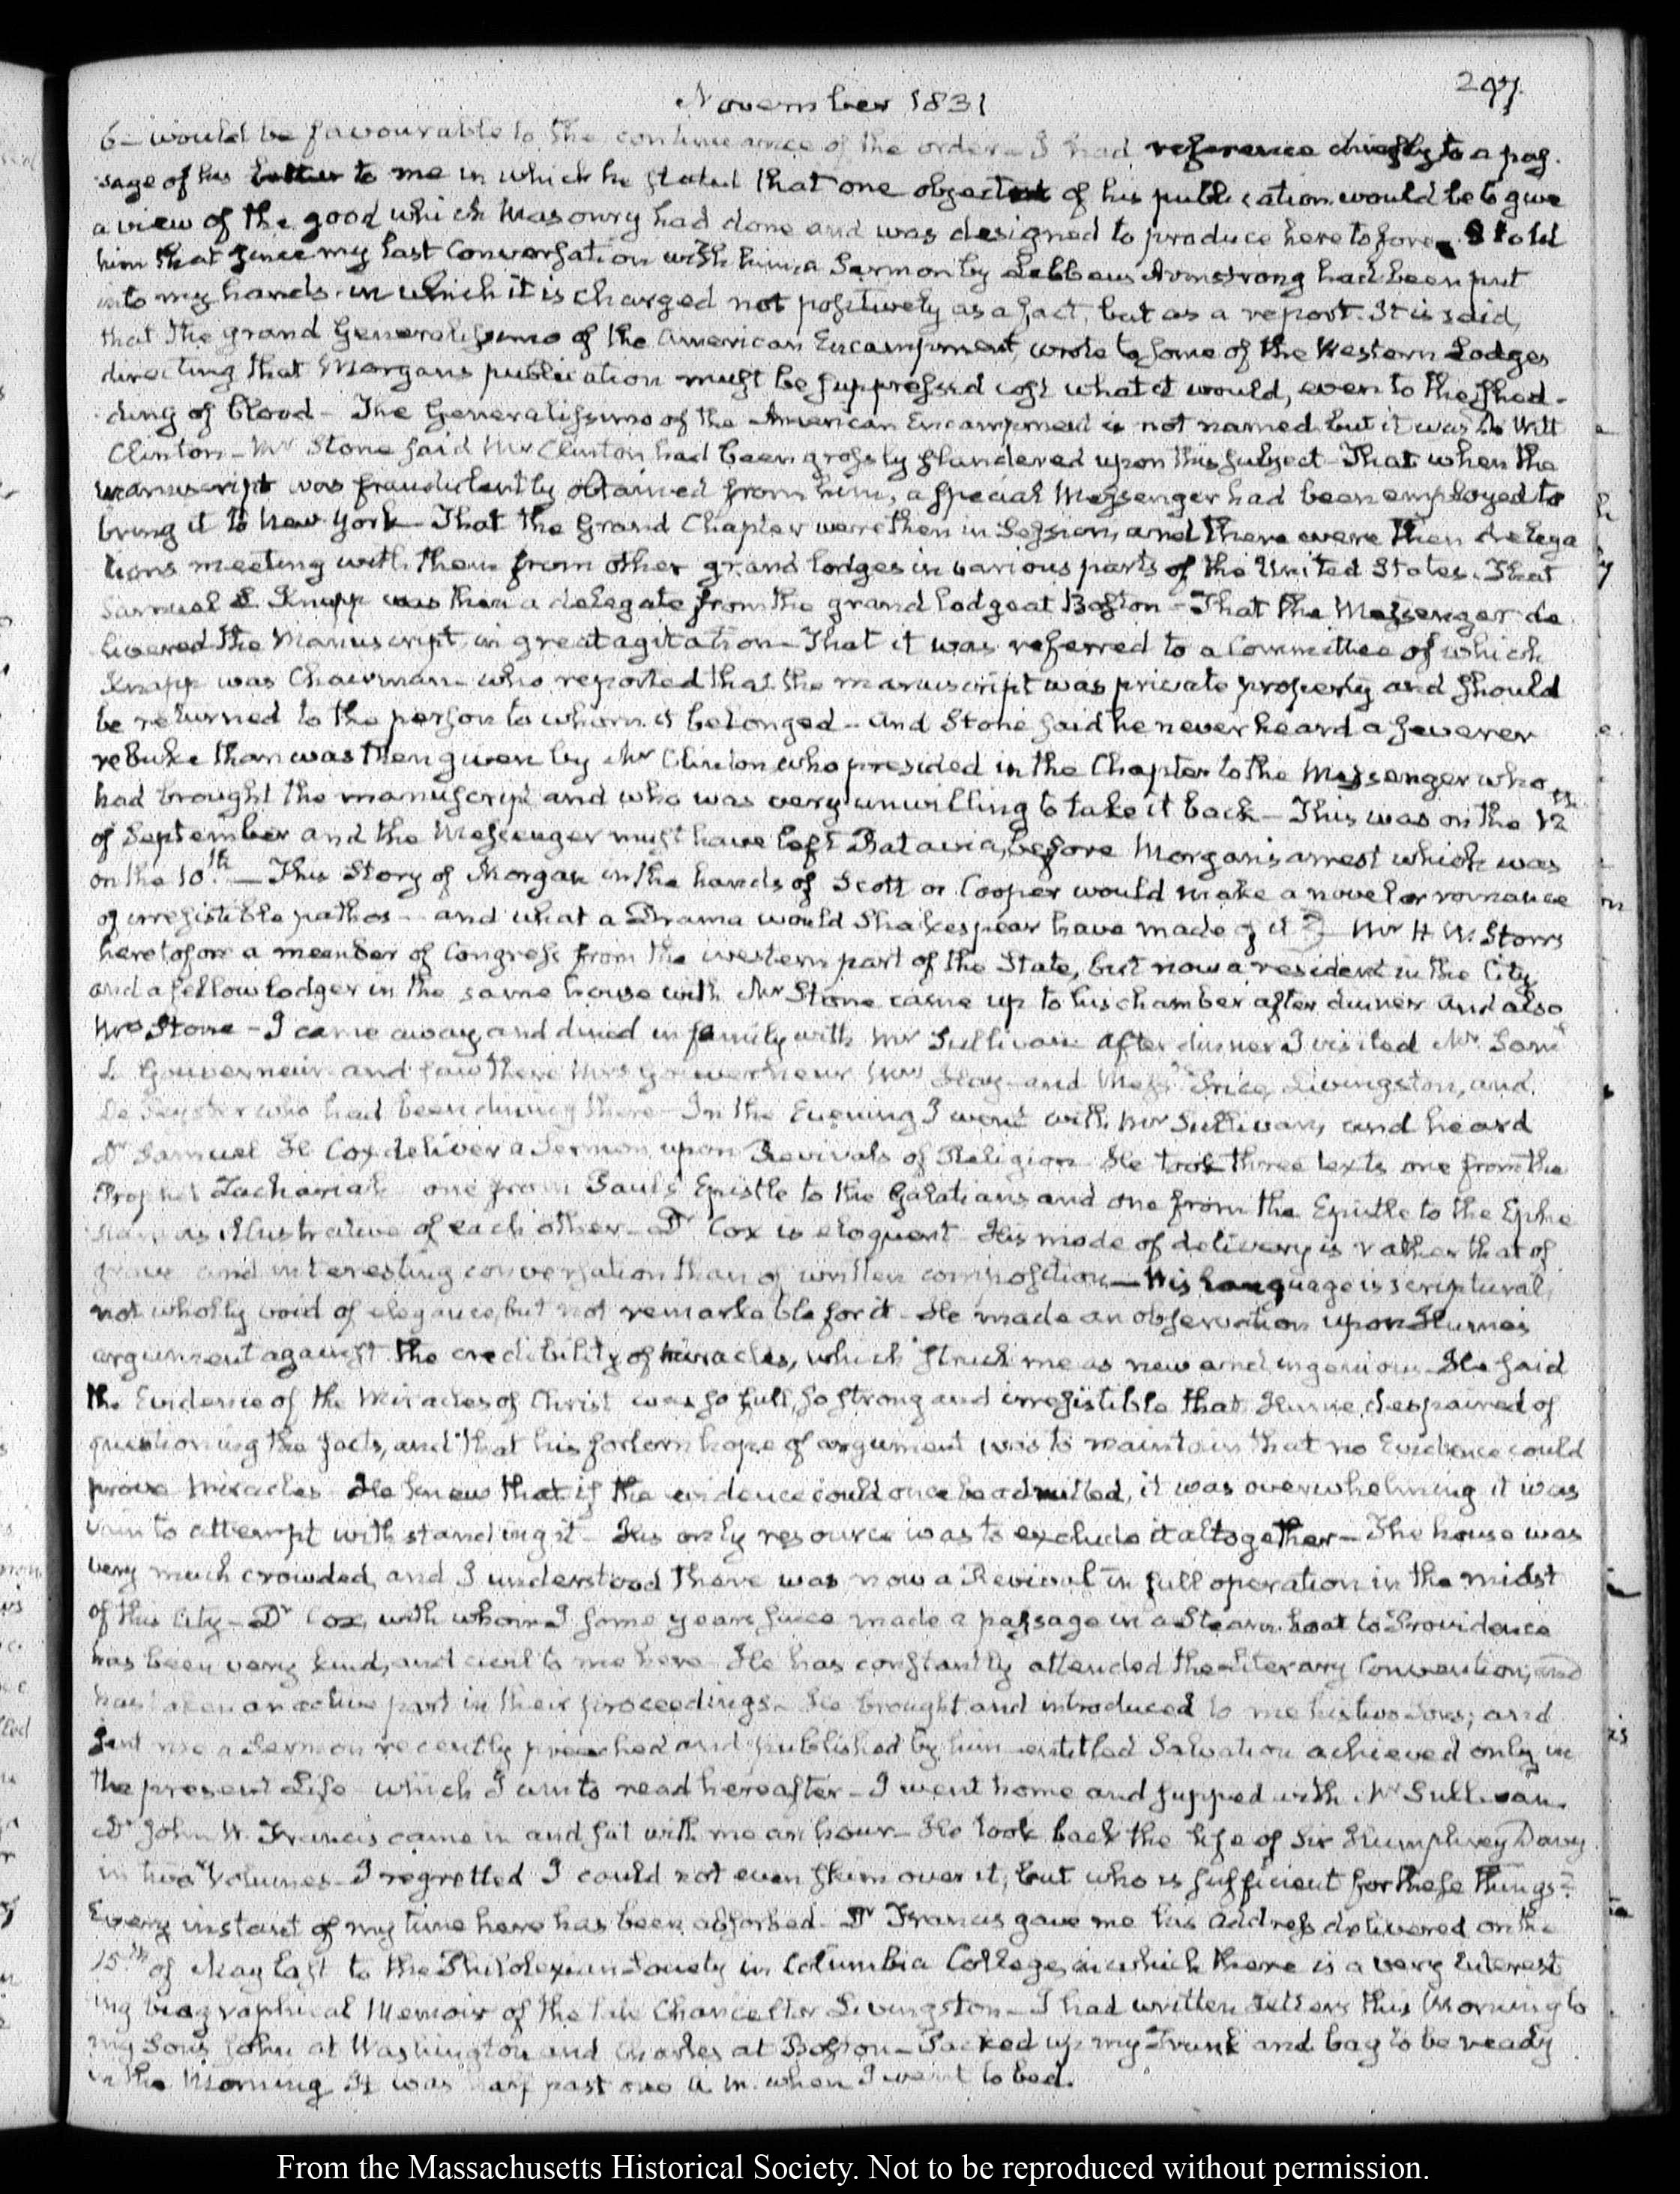 247.
November 1831
6— would be favourable to the continuance of the order— I had reference chiefly to a pas-
sage of his Letter to me in which he stated that one object of his publication would be to give
a view of the good which Masonry had done and was designed to produce heretofore. I told
him that since my last Conversation with him a Sermon by Lebbeus Armstrong had been put
into my hands in which it is charged not positively as a fact, but as a report. It is said,
that the grand Generalissimo of the American Encampment, wrote to some of the Western Lodges
directing that Morgan's publication must be suppressed cost what it would, even to the shed-
ding of blood— The Generalissimo of the American Encampment is not named but it was De Witt
Clinton— Mr Stone said Mr Clinton had been grossly slandered upon this subject— That when the
manuscript was fraudulently obtained from him, a special Messenger had been employed to
bring it to New York— That the Grand Chapter were then in Session, and there were then delega
tions meeting with them from other grand lodges in various parts of the United States. That
Samuel L. Knapp was then a delegate from the grand Lodge at Boston— That the Messenger de
livered the Manuscript in great agitation— That it was referred to a Committee of which
Knapp was Chairman— who reported that the manuscript was private property and should
be returned to the person to whom it belonged— and Stone said he never heard a severer
rebuke than was then given by Mr Clinton who presided in the Chapter to the Messenger who
had brought the manuscript and who was very unwilling to take it back— This was on the 12th
of September and the Messenger must have left Batavia, before Morgan's arrest which was
on the 10th.— This Story of Morgan in the hands of Scott or Cooper would make a novel or romance
of irresistible pathos— and what a Drama would Shakespear have made of it? Mr H. R. Storrs
heretofore a member of Congress from the western part of the State, but now a resident in the City
and a fellow lodger in the same house with Mr Stone came up to his chamber after dinner and also
Mrs Stone— I came away, and dined in family with Mr Sullivan. After dinner I visited Mr Saml
L Gouverneur and saw there Mrs Gouverneur, Mrs Hay— and Messrs Price, Livingston, and
De Peyster who had been dining there— In the Evening I went with Mr Sullivan, and heard
Dr Samuel H Cox deliver a Sermon, upon Revivals of Religion— He took three texts one from the
Prophet Zachariah one from Paul's Epistle to the Galatians and one from the Epistle to the Ephe
sians as illustrative of each other— Dr Cox is eloquent— His mode of delivery is rather that of
grave and interesting conversation than of written composition— His language is scriptural,
not wholly void of elegance, but not remarkable for it— He made an observation upon Hume's
argument against the credibility of miracles, which struck me as new and ingenious— He said
the Evidence of the Miracles of Christ was so full, so strong and irresistible that Hume despaired of
questioning the facts, and that his forlorn hope of argument was to maintain that no Evidence could
prove Miracles— He knew that if the evidence could once be admitted, it was overwhelming it was
vain to attempt withstanding it— His only resource was to exclude it altogether— The house was
very much crowded, and I understood there was now a Revival in full operation in the midst
of this City— Dr Cox, with whom I some years since made a passage in a Steam boat to Providence
has been very kind, and civil to me here— He has constantly attended the Literary Convention, and
has taken an active part in their proceedings— He brought and introduced to me his two Sons; and
sent me a Sermon recently preached and published by him entitled Salvation achieved only in
the present Life— which I am to read hereafter— I went home and supped with Mr Sullivan.
Dr John W. Francis came in and sat with me an hour— He took back the life of Sir Humphrey Davy
in two Volumes— I regretted I could not even skim over it, but who is sufficient for these things?
Every instant of my time here has been absorbed— Dr Francis gave me his Address delivered on the
15th of May last to the Philolexian Society in Columbia College, in which there is a very interest
ing biographical Memoir of the late Chancellor Livingston— I had written Letters this Morning to
my Sons John at Washington and Charles at Boston— Packed up my Trunk and bag to be ready
in the Morning. It was half past one A.M. when I went to bed.
From the Massachusetts Historical Society. Not to be reproduced without permission.